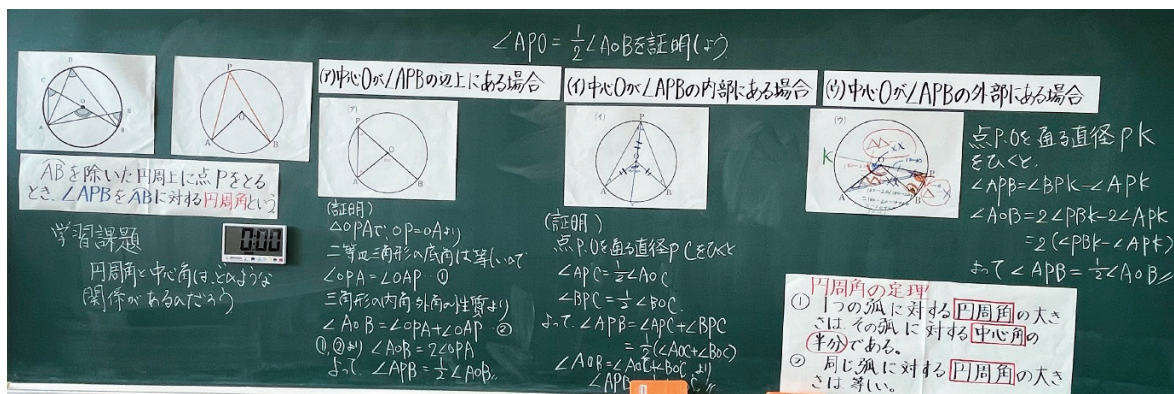 ∠APO = 1/2∠AOBを証明しよう
A͡Bを除いた円周上に点Pをとる
とき、∠APBをA͡Bに対する円周角という
学習課題
円周角と中心角は、どのような
関係があるのだろう
0:00
(ア)中心Oが∠APBの辺上にある場合
(ア)
P
O
A
B
(証明)
△OPAで、OP=OAより
二等辺三角形の底角は等しいので
∠OPA=∠OAP…①
三角形の内角、外角の性質より
∠AOB=∠OPA+∠OAP…②
①,②より ∠AOB=2∠OPA
よって ∠APB=1/2∠AOB〃
(イ)中心Oが∠APBの内部にある場合
(イ)
P
O
A
B
(証明)
点P.Oを通る直径PCをひくと
∠APC=1/2∠AOC
∠BPC=1/2∠BOC
よって、∠APB=∠APC+∠BPC
=1/2(∠AOC+∠BOC)
∠AOB=∠AOC+∠BOCより
∠APB
(ウ)中心Oが∠APBの外部にある場合
(ウ)
K
O
P
A
B
点P.Oを通る直径PK
をひくと、
∠APB=∠BPK-∠APK
∠AOB=2∠PBK-2∠APK
=2(∠PBK-∠APK)
よって ∠APB=1/2∠AOB〃
円周角の定理
① 1つの弧に対する円周角の大き
さは、その弧に対する中心角の
半分である。
② 同じ弧に対する円周角の大き
さは等しい。